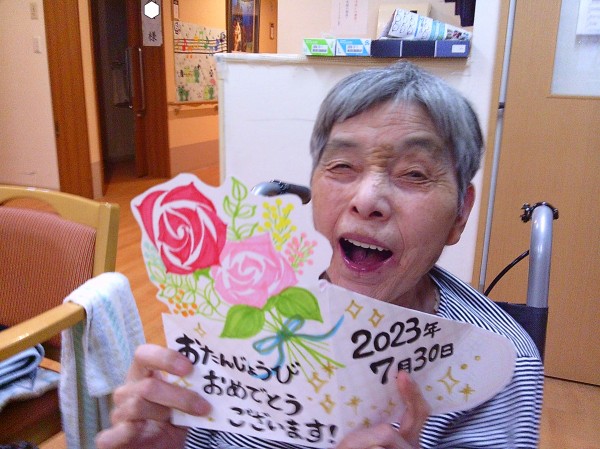 様
おたんじょうび
おめでとう
ございます!
2023年
7月30日